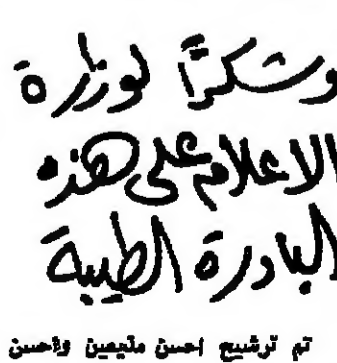 وشكرًا لوزارة
الاعلام على هذه
البادرة الطيبة
تم ترشيح احسن مذيعين واحسن